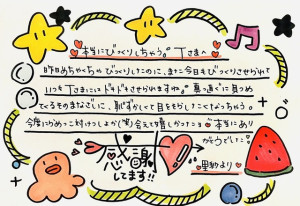 本当にびっくりしちゃう。Tさまへ
昨日めちゃくちゃびっくりしたのに、また今日もびっくりさせられて
いつもTさまにはドキドキさせられますね。真っ直ぐに見つめ
てくるそのまなざしに、恥ずかしくて目をそらしたくなっちゃう。
今度にらめっこ対けつしよか(笑)会えて嬉しかったョ 本当にあり
がとうでした
感謝
してます!!
里帆より